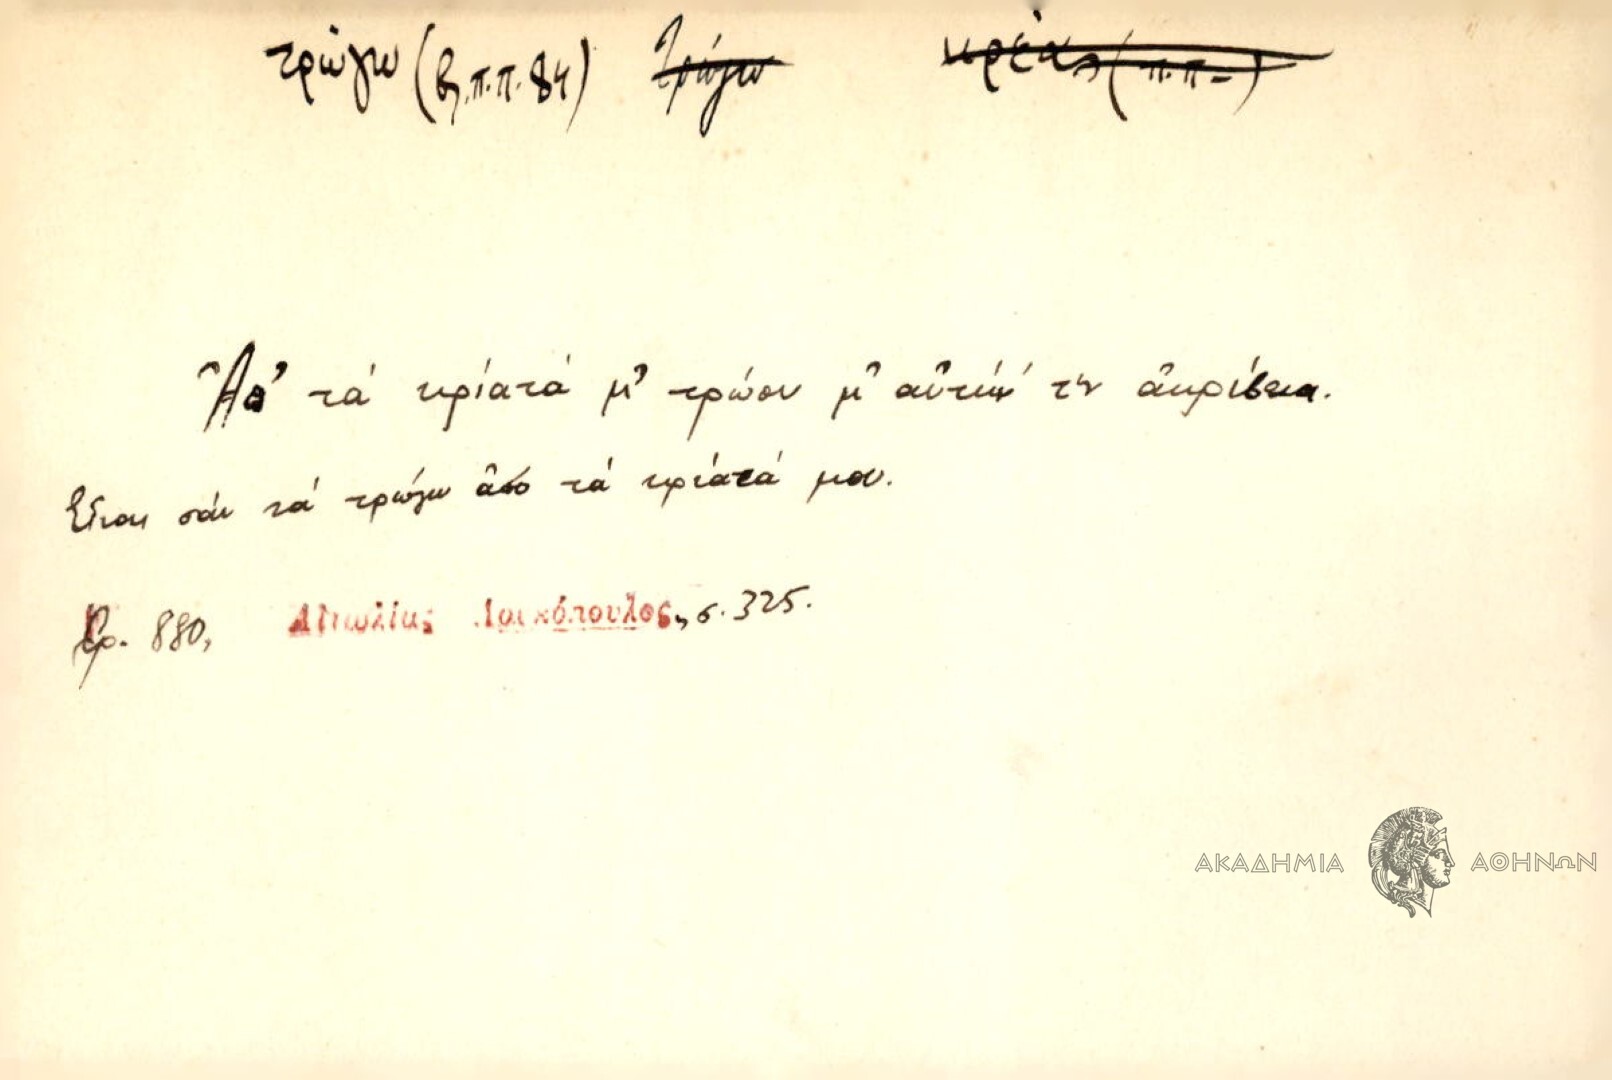 τρώγω (βλ. π.π. 84) τρώγω κρέας (π.π. –)
Ἀπ' τὰ κρίατά μ' τρώου μ' αὐτὴν τ'ν ἀκρίβεια.
Εἶναι σὰν νὰ τρώγω ἀπὸ τὰ κρίατά μου.
Ἑρ. 880, Αἰτωλίας Λουκόπουλος, σ. 325.
ΑΚΑΔΗΜΙΑ ΑΘΗΝΩΝ